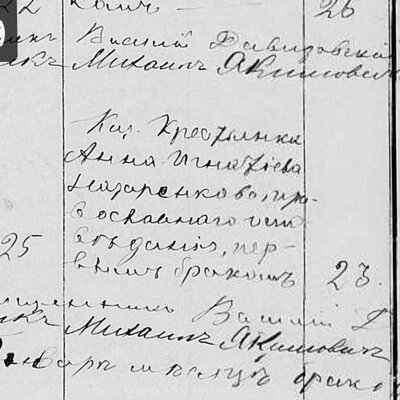 22 комъ — 26
Василій Давидовскій
Михаилъ Якимовичъ
Каз. Крестьянка
Анна Игнатіева
Назаренкова, пра-
вославнаго испо-
вѣданія, пер-
25 вымъ бракомъ 23.
Василій
Михаилъ Якимовичъ
Январь мѣсяцъ брако